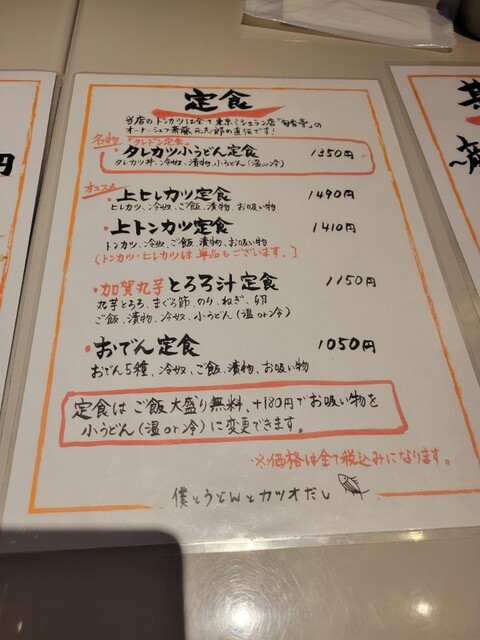 定食
当店のトンカツは全て東京ミシュラン店「旬香亭」の
オーナーシェフ斎藤元志郎の直伝です!
名物
「タレトン定食」
・タレカツ小うどん定食 1350円
タレカツ丼、冷奴、漬物、小うどん(温or冷)
オススメ
・上ヒレカツ定食 1490円
ヒレカツ、冷奴、ご飯、漬物、お吸い物
・上トンカツ定食 1410円
トンカツ、冷奴、ご飯、漬物、お吸い物
(トンカツ・ヒレカツは単品もございます。)
・加賀丸芋とろろ汁定食 1150円
丸芋とろろ、まぐろ節、のり、ねぎ、卵
ご飯、漬物、冷奴、小うどん(温or冷)
・おでん定食 1050円
おでん5種、冷奴、ご飯、漬物、お吸い物
定食はご飯大盛り無料、+180円でお吸い物を
小うどん(温or冷)に変更できます。
※価格は全て税込みになります。
僕とうどんとカツオだし
円